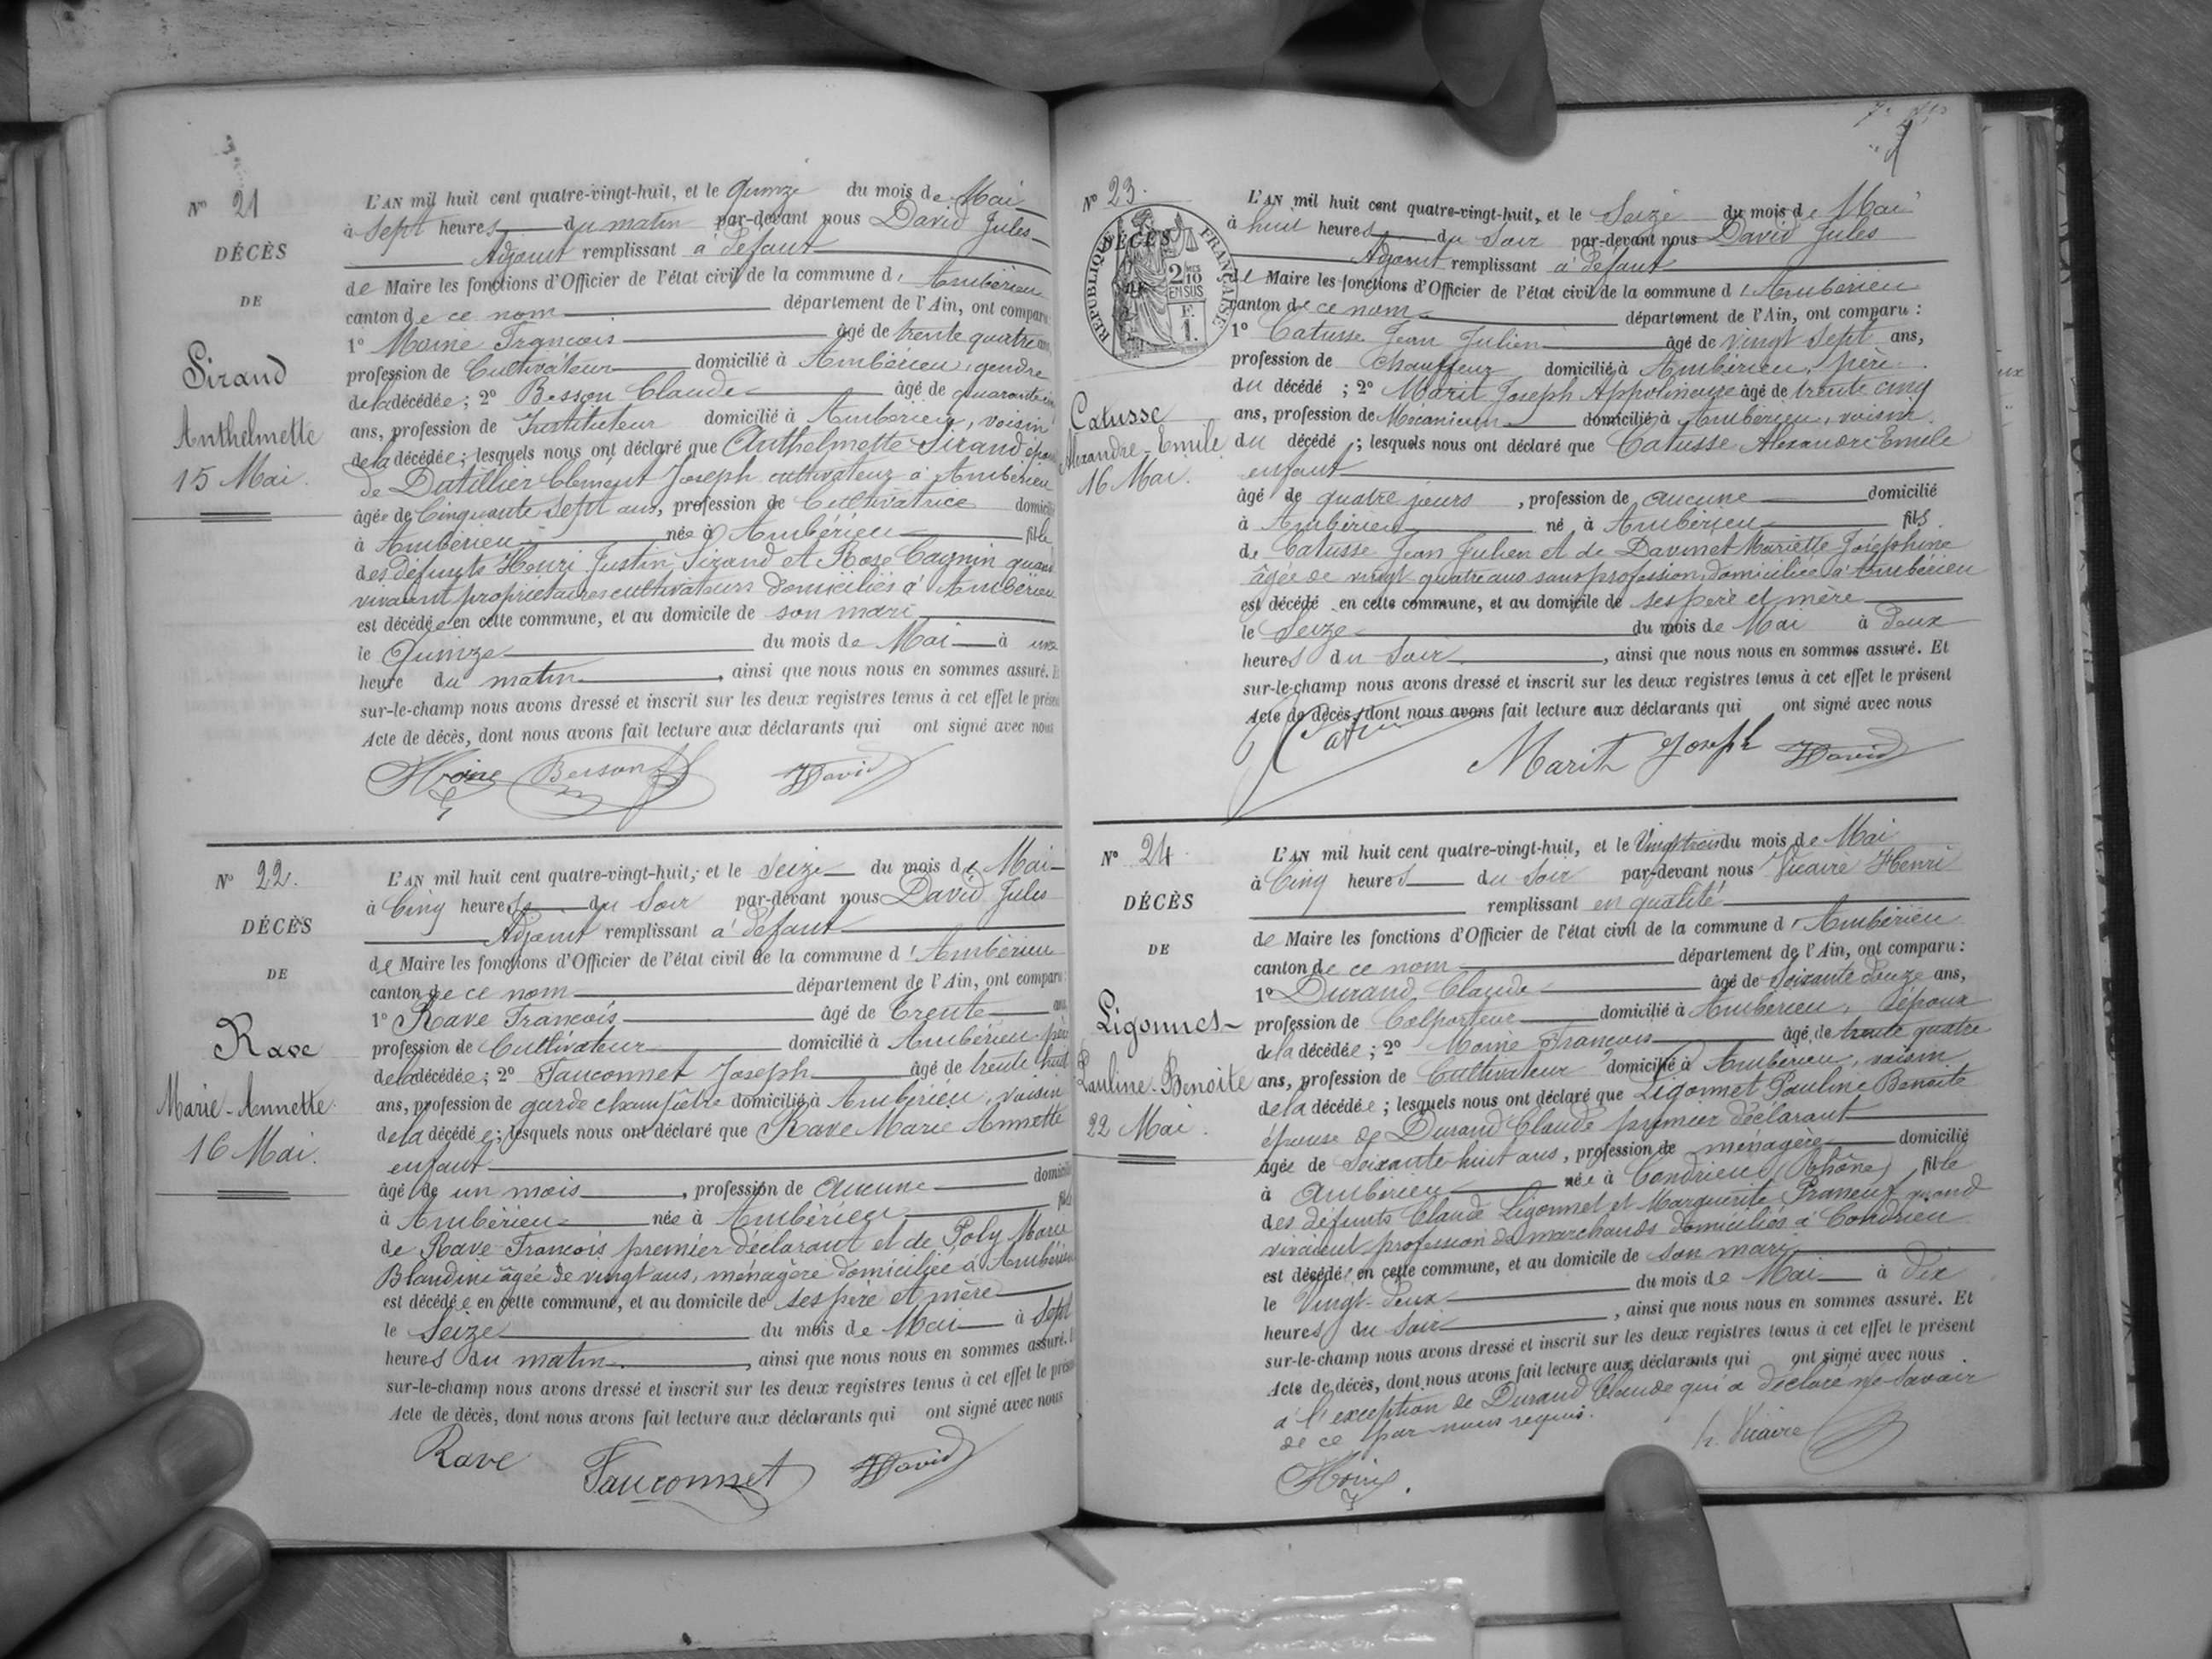 Nº 21
DÉCÈS
DE
Sirand
Anthelmette
15 Mai.
L'AN mil huit cent quatre-vingt-huit, et le Quinze du mois de Mai
à Sept heures du matin par-devant nous David Jules
Adjoint remplissant à défaut
de Maire les fonctions d'Officier de l'état civil de la commune d' Ambérieu
canton de ce nom département de l'Ain, ont comparu :
1º Moine François âgé de trente quatre ans,
profession de Cultivateur domicilié à Ambérieu, gendre
de la décédée ; 2º Besson Claude âgé de quarante
ans, profession de Instituteur domicilié à Ambérieu, voisin
de la décédée ; lesquels nous ont déclaré que Anthelmette Sirand épouse
de Dutillier Clément Joseph cultivateur à Ambérieu
âgée de Cinquante Sept ans, profession de Cultivatrice domicilié
à Ambérieu née à Ambérieu fille
des défunts Henri Justin Sirand et Rose Cagnin quand
vivaient propriétaires cultivateurs domiciliés à Ambérieu
est décédée en cette commune, et au domicile de son mari
le Quinze du mois de Mai à une
heure du matin, ainsi que nous nous en sommes assuré. Et
sur-le-champ nous avons dressé et inscrit sur les deux registres tenus à cet effet le présent
Acte de décès, dont nous avons fait lecture aux déclarants qui ont signé avec nous
Moine Besson JDavid
Nº 22.
DÉCÈS
DE
Rave
Marie-Annette
16 Mai.
L'AN mil huit cent quatre-vingt-huit, et le Seize du mois de Mai
à Cinq heures du Soir par-devant nous David Jules
Adjoint remplissant à défaut
de Maire les fonctions d'Officier de l'état civil de la commune d' Ambérieu
canton de ce nom département de l'Ain, ont comparu :
1º Rave François âgé de Trente ans
profession de Cultivateur domicilié à Ambérieu père
de la décédée ; 2º Fauconnet Joseph âgé de trente huit
ans, profession de garde champêtre domicilié à Ambérieu, voisin
de la décédée ; lesquels nous ont déclaré que Rave Marie Annette
enfant
âgé de un mois, profession de Aucune domicilié
à Ambérieu née à Ambérieu fille
de Rave François premier déclarant et de Poly Marie
Blandine âgée de vingt ans, ménagère domiciliée à Ambérieu
est décédée en cette commune, et au domicile de ses père et mère
le Seize du mois de Mai à Sept
heures du matin, ainsi que nous nous en sommes assuré. Et
sur-le-champ nous avons dressé et inscrit sur les deux registres tenus à cet effet le présent
Acte de décès, dont nous avons fait lecture aux déclarants qui ont signé avec nous
Rave Fauconnet JDavid
Nº 23.
DÉCÈS
RÉPUBLIQUE FRANÇAISE
2/10 EN SUS
F. 1.
Catusse
Alexandre-Emile
16 Mai.
L'AN mil huit cent quatre-vingt-huit, et le Seize du mois de Mai
à huit heures du Soir par-devant nous David Jules
Adjoint remplissant à défaut
de Maire les fonctions d'Officier de l'état civil de la commune d' Ambérieu
canton de ce nom département de l'Ain, ont comparu :
1º Catusse Jean Julien âgé de vingt sept ans,
profession de Chauffeur domicilié à Ambérieu, père
du décédé ; 2º Marit Joseph Appolinaire âgé de trente cinq
ans, profession de Mécanicien domicilié à Ambérieu, voisin
du décédé ; lesquels nous ont déclaré que Catusse Alexandre Emile
enfant
âgé de quatre jours, profession de aucune domicilié
à Ambérieu né à Ambérieu fils
de Catusse Jean Julien et de Davinet Mariette Joséphine
âgée de vingt quatre ans sans profession, domiciliée à Ambérieu
est décédé en cette commune, et au domicile de ses père et mère
le Seize du mois de Mai à Deux
heures du Soir, ainsi que nous nous en sommes assuré. Et
sur-le-champ nous avons dressé et inscrit sur les deux registres tenus à cet effet le présent
Acte de décès, dont nous avons fait lecture aux déclarants qui ont signé avec nous
Marit Joseph JDavid
Nº 24
DÉCÈS
DE
Ligonnet
Pauline-Benoite
22 Mai.
L'AN mil huit cent quatre-vingt-huit, et le Vingt trois du mois de Mai
à Cinq heures du Soir par-devant nous Vicaire Henri
remplissant en qualité
de Maire les fonctions d'Officier de l'état civil de la commune d' Ambérieu
canton de ce nom département de l'Ain, ont comparu :
1º Durand Claude âgé de Soixante Douze ans,
profession de Colporteur domicilié à Ambérieu, l'époux
de la décédée ; 2º Moine François âgé de trente quatre
ans, profession de Cultivateur domicilié à Ambérieu, voisin
de la décédée ; lesquels nous ont déclaré que Ligonnet Pauline Benoite
épouse de Durand Claude premier déclarant
âgée de Soixante-huit ans, profession de ménagère domicilié
à Ambérieu née à Condrieu (Rhône) fille
des défunts Claude Ligonnet et Marguerite quand
vivaient profession de marchands domiciliés à Condrieu
est décédée en cette commune, et au domicile de son mari
le Vingt-Deux du mois de Mai à Dix
heures du Soir, ainsi que nous nous en sommes assuré. Et
sur-le-champ nous avons dressé et inscrit sur les deux registres tenus à cet effet le présent
Acte de décès, dont nous avons fait lecture aux déclarants qui ont signé avec nous
à l'exception de Durand Claude qui a déclaré ne savoir
de ce par nous requis.
Moine h. Vicaire